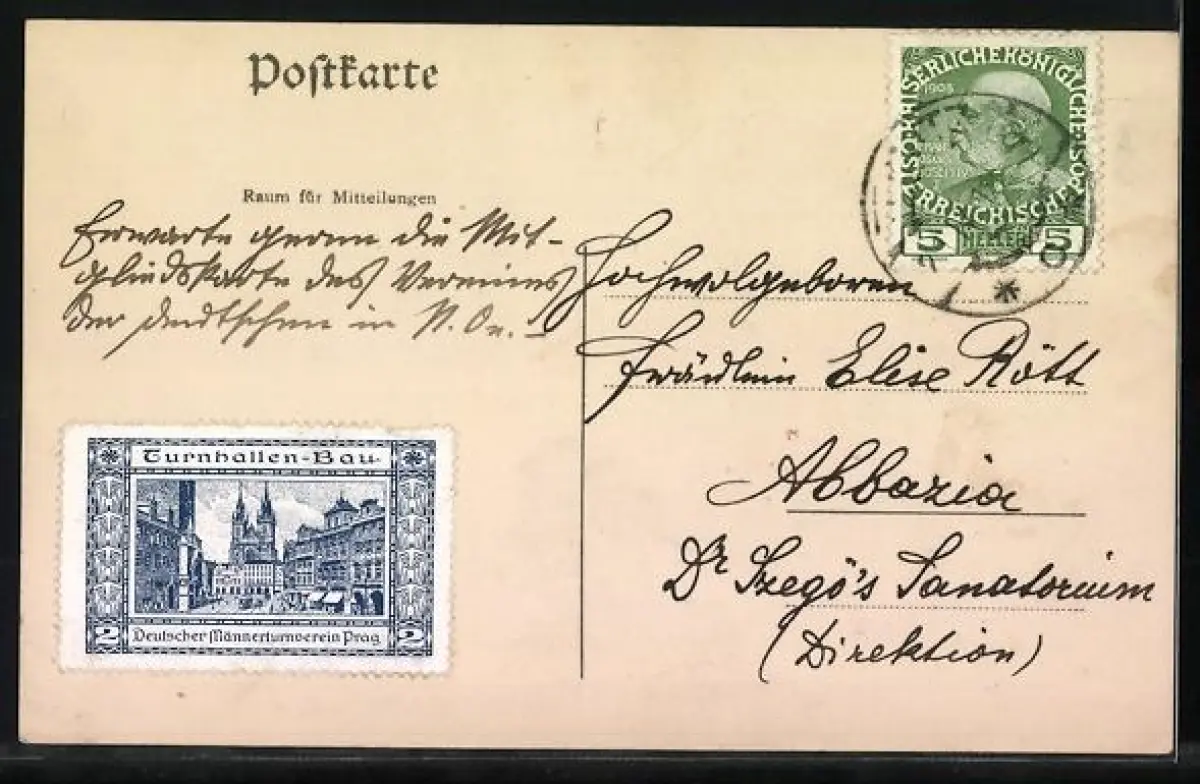 Postkarte
Raum für Mitteilungen
Erwarte gerne die Mit-
gliedskarte des Vereines
der deutschen in N. Oe.!
Hochwolgeboren
Fräulein Elise Rött
Abbazia
Dr Szegö's Sanatorium
(Direktion)
KAISERLICHEKÖNIGLICHE
ÖSTERREICHISCHE POST
1908
5 HELLER 5
Turnhallen-Bau
2 Deutscher Männerturnverein Prag 2